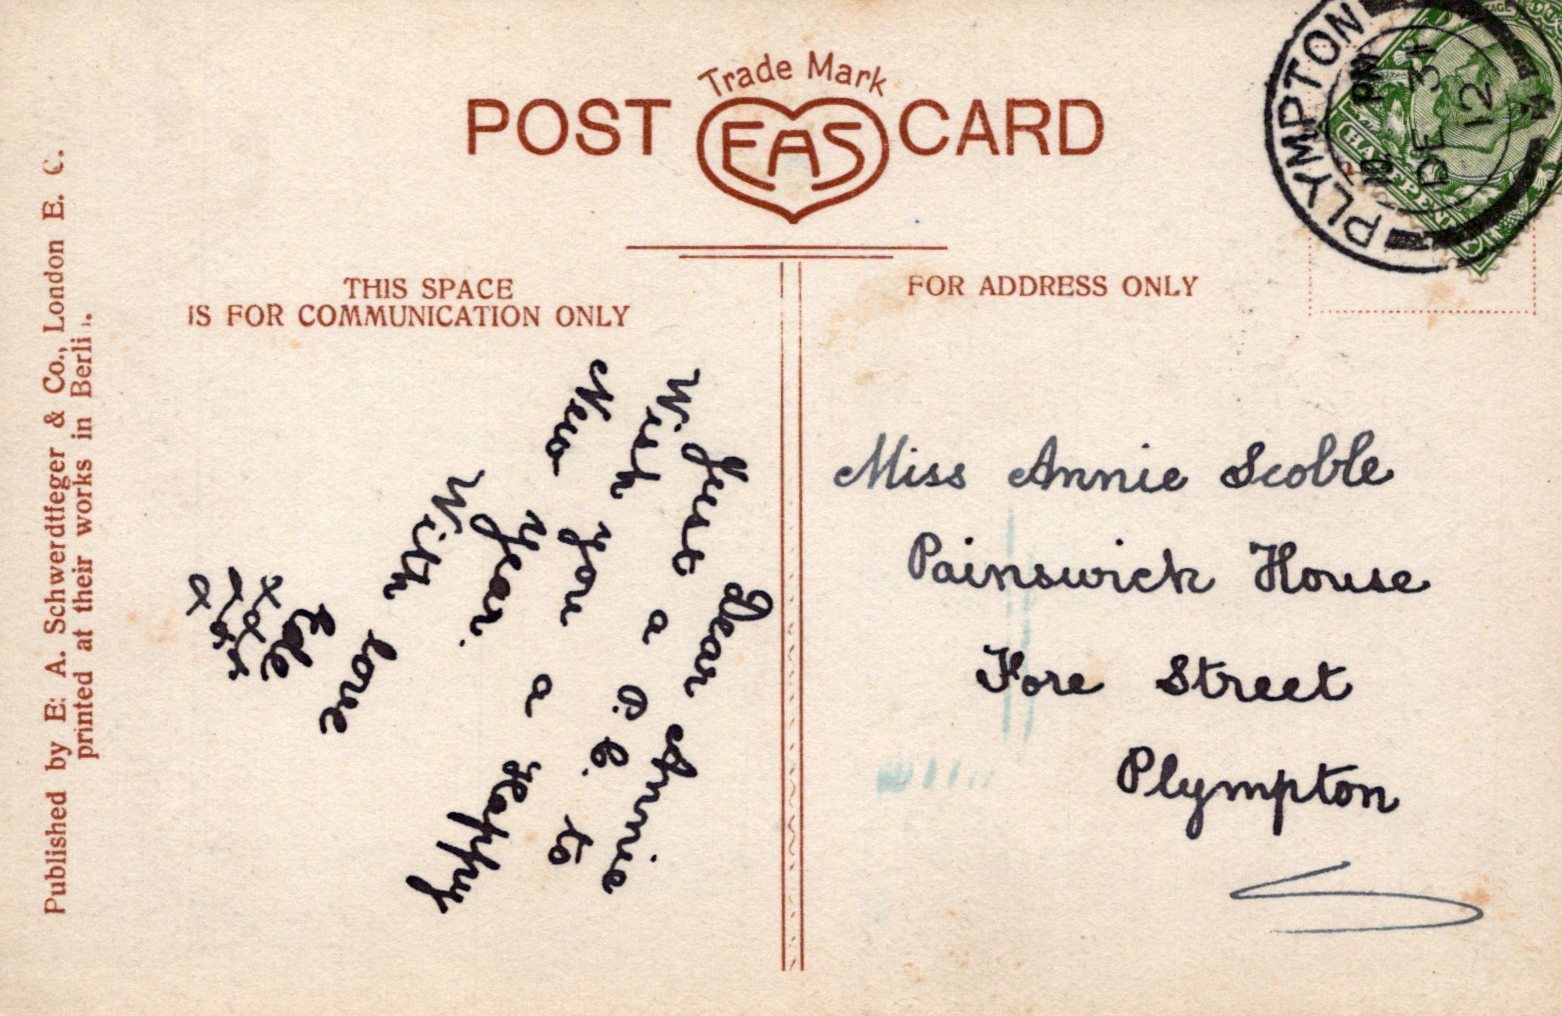 Trade Mark
POST EAS CARD
THIS SPACE
IS FOR COMMUNICATION ONLY
FOR ADDRESS ONLY
PLYMPTON
8 PM
DE 31
12
HALFPENNY
Dear Annie
Just a P.C. to
Wish you a Happy
New Year.
With love
Ede
x x x
x x x
Miss Annie Scoble
Painswick House
Fore Street
Plympton
Published by E. A. Schwerdtfeger & Co., London E. C.
printed at their works in Berlin.